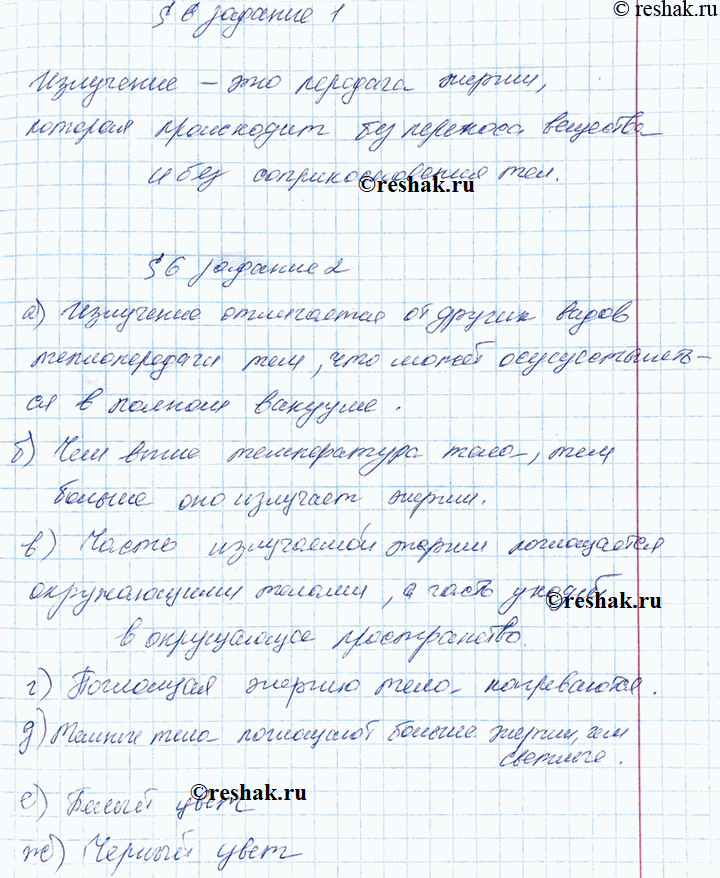 © reshak.ru
§ 6 задание 1
Излучение – это передача энергии,
которая происходит без переноса вещества
и без соприкосновения тел.
©reshak.ru
§ 6 задание 2
а) Излучение отличается от других видов
теплопередачи тем, что может
ся в полном вакууме.
б) Чем выше температура тела, тем
больше оно излучает энергии.
в) Часть излучаемой энергии поглощается
окружающими телами, а часть уходит
©reshak.ru
в окружающее пространство.
г) Поглощая энергию тела нагреваются.
д) Темные тела поглощают больше энергии, чем
светлые.
©reshak.ru
е) Белый цвет
ж) Черный цвет